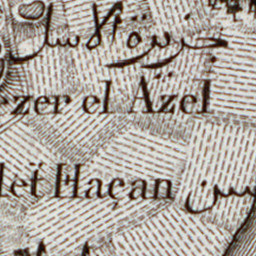 جزيرة الاسل
ezer el Äzel
lët Haçan